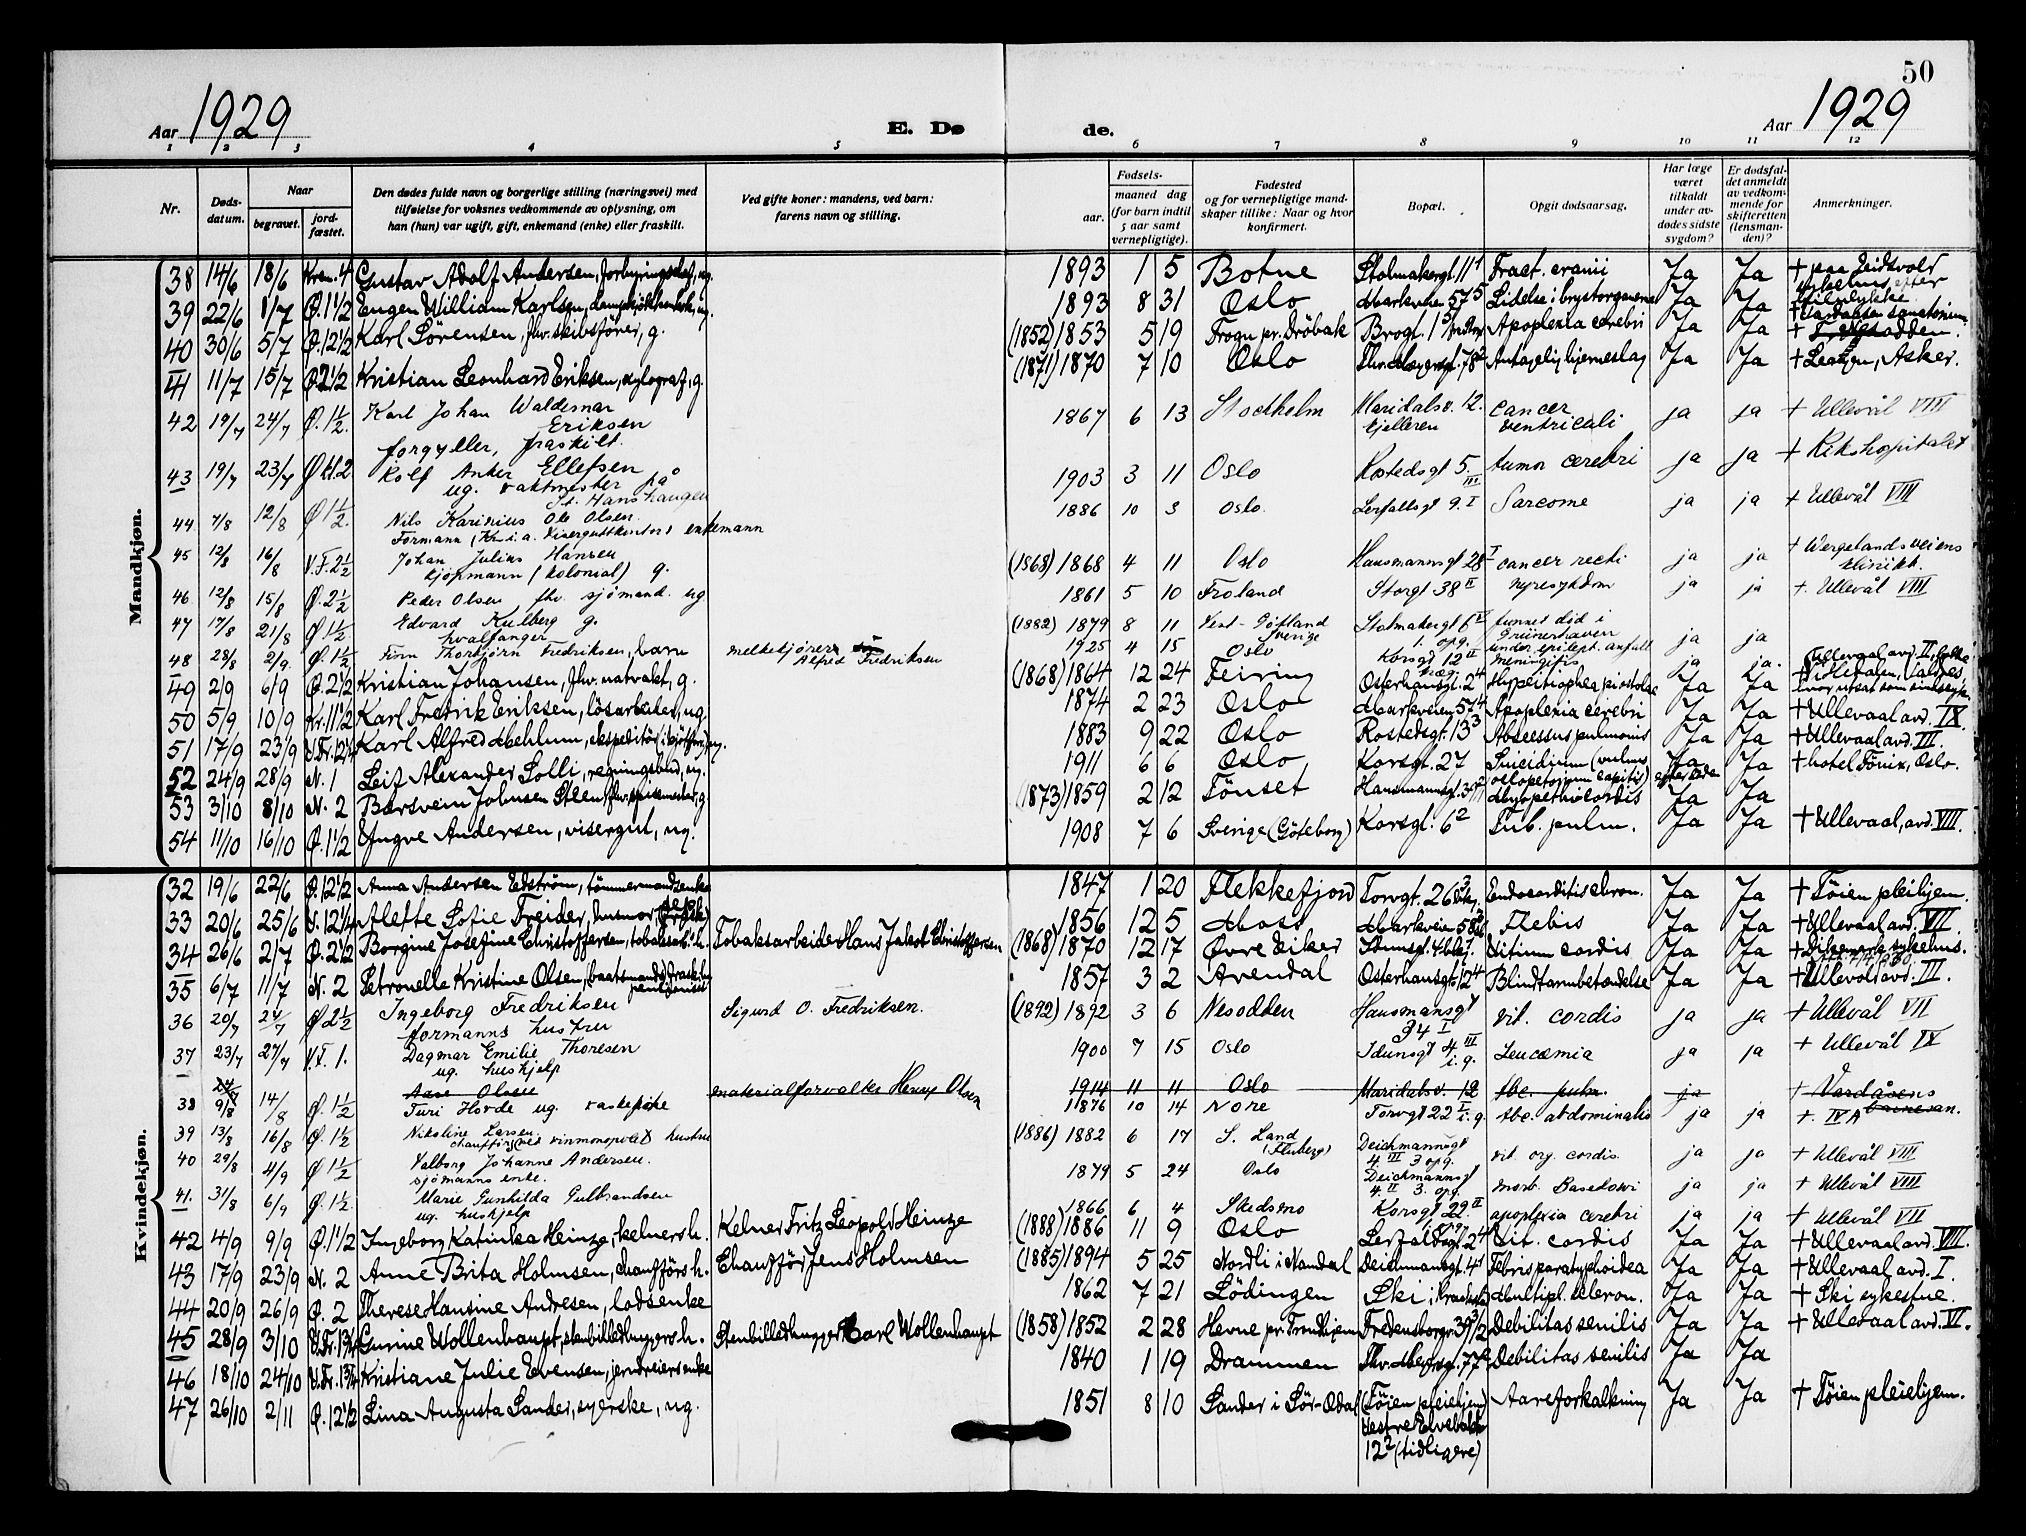 50
Aar 1929 E. Dø de. Aar 1929
1 2 3 4 5 6 7 8 9 10 11 12
Nr. Døds-datum. Naar begravet. jord-fæstet. Den dødes fulde navn og borgerlige stilling (næringsvei) med tilføielse for voksnes vedkommende av oplysning, om han (hun) var ugift, gift, enkemand (enke) eller fraskilt. Ved gifte koner: mandens, ved barn: farens navn og stilling. Fødsels- aar. maaned dag (for barn indtil 5 aar samt vernepligtige). Fødested og for vernepligtige mand-skaper tillike: Naar og hvor konfirmert. Bopæl. Opgit dødsaarsag. Har læge været tilkaldt under av-dødes sidste sygdom? Er dødsfal-det anmeldt av vedkom-mende for skifteretten (lensman-den)? Anmerkninger.
Mandkjøn.
38 14/6 18/6 Krem. 4 Gustav Adolf Andersen, ug. 1893 1 5 Botne Stolmakergt. 11 1 Fract. cranii Ja Ja + paa Eidsvold sykehus efter ulykke.
39 22/6 1/7 Ø. 1 1/2 Eugen William Karlsen, ug. 1893 8 31 Oslo Markveien 57 5 Lidelse i brystorganerne Ja Ja + Vardaasen sanatorium
40 30/6 5/7 Ø. 12 1/2 Karl Sørensen, fhv. skibsfører, g. (1852) 1853 5 19 Frogn pr. Drøbak Brogt. 1 Apoplexia cerebri Ja Ja +
41 11/7 15/7 Ø. 2 1/2 Kristian Leonhard Eriksen, xylograf, g. (1871) 1870 7 10 Oslo Thv. Meyersgt. 78 2 Antagelig hjerneslag Ja Ja + Asker.
42 19/7 24/7 Ø. 1 1/2. Karl Johan Waldemar Eriksen 1867 6 13 Stockholm Maridalsv. 12. kjelleren cancer ventriculi ja ja + Ullevål VIII
forgyller, fraskilt.
43 19/7 23/7 Ø kl. 2 Rolf Anker Ellefsen 1903 3 11 Oslo Rostedsgt 5. III tumor cerebri ja ja + Rikshospitalet
ug. vaktmester på St. Hanshaugen
44 7/8 12/8 Ø 1 1/2. Nils Karinius Ole Olsen 1886 10 3 Oslo. Lerfallsgt 9. I Sarcome ja ja + Ullevål VIII
Formann (Kr.i.a. Visergutkontor) enkemann
45 12/8 16/8 V.F. 2 1/2 Johan Julius Hansen (1868) 1868 4 11 Oslo Hausmannsgt 28 I cancer recti ja ja + Wergelandsveiens klinikk.
kjøpmann (kolonial) g.
46 12/8 15/8 Ø. 2 1/2 Peder Olsen fhv. sjømand. ug 1861 5 10 Froland Storgt 38 II nyresykdom ja ja +. Ullevål VIII
47 17/8 21/8 Ø 1 1/2. Edvard Kulberg g. hvalfanger (1882) 1879 8 11 Vest-Götland Sverige Stolmakergt 6 II 1. opg. funnet død i Grünerhaven ja ja
48 28/8 2/9. Ø. 1 1/2 Finn Thorbjørn Fredriksen, barn melkekjører Alfred Fredriksen 1925 4 15 Oslo Korsgt 12 II under epilept. anfall meningitis ja ja. Ullevaal avd. II
49 2/9 6/9 Ø. 2 1/2 Kristian Johansen, fhv. natvakt, g. (1868) 1864 12 24 Feiring Osterhausgt. 2 4 Ja Ja
50 5/9 10/9 Kr. 11 1/2 Karl Fredrik Eriksen, løsarbeider, ug. 1874 2 23 Oslo Markveien 57 4 Apoplexia cerebri Ja Ja + Ullevaal avd. IX
51 17/9 23/9 V.Fr. 12 1/4 Karl Alfred Mehlum, ekspeditør ug. 1883 9 22 Oslo Rostedsgt. 13 3 Abscessus pulmonis Ja Ja + Ullevaal avd. III.
52 24/9 28/9 N. 1 Leif Alexander Solli, regningsbud, ug. 1911 6 6 Oslo Korsgt. 27 Suicidium (vulnus sclopetarium capitis) Ja efter døden Ja + hotel Fönix, Oslo.
53 3/10 8/10 N. 2 Barsvein Johnsen Steen, g. (1873) 1859 2 12 Tönset Hausmannsgt. Myopathia cordis Ja Ja
54 11/10 16/10 Ø. 1 1/2 Yngve Andersen, visergut, ug. 1908 7 6 Sverige (Göteborg) Korsgt. 6 2 Tub. pulm. Ja Ja + Ullevaal, avd. VIII.
Kvindekjøn.
32 19/6 22/6 Ø. 12 1/2 Anna Andersen Edstrøm, tømmermandsenke 1847 1 20 Flekkefjord Torvgt. 26 Endocarditis chron. Ja Ja + Tøien pleihjem.
33 20/6 25/6 V. 12 1/4 Alette Sofie Freider, husmor, 1856 12 5 Moss Markvei 58 Flebis Ja Ja + Ullevaal avd. VII
34 26/6 2/7 Ø. 2 1/2 Borgine Josefine Christoffersen, tobaksarb. h. Tobaksarbeider Hans Jakob Christoffersen (1868) 1870 12 17 Øvre Eiker Vitium cordis Ja Ja + Dikemark sykehus.
35 6/7 11/7 N. 2 Petronelle Kristine Olsen, 1857 3 2 Arendal Osterhausgt. 12 4 Blindtarmbetændelse Ja Ja + Ullevål avd. III.
36 20/7 24/7 Ø 2 1/2 Ingeborg Fredriksen Sigurd O. Fredriksen. (1892) 1892 3 6 Nesodden Hausmansgt 34 I vit. cordis ja ja + Ullevål VII
formanns hustru
37 23/7 27/7 V.F. 1. Dagmar Emilie Thoresen 1900 7 15 Oslo Idunsgt 4 III i.g. Leucæmia ja ja + Ullevål IX
ug. hushjelp
24/7 Aase Olsen materialforvalter Henry Olsen 1914 11 11 Oslo Maridalsv. 12 tbc. pulm. ja + Vardåsens barnesan.
38 9/8 14/8 Ø. 1 1/2 Turi Hovde ug. vaskepike 1876 10 14 Nore Torvgt 22 I i.g. tbc. abdominalis ja ja +. IV A
39 13/8 16/8 Ø. 1 1/2 Nikoline Larsen. chauffør ved vinmonopolet hustru (1886) 1882 6 17 S. Land (Fluberg) Deichmannsgt 4. III 3 opg. vit. org. cordis. ja ja + Ullevål VIII
40 29/8 4/9 Ø 1 1/2 Valborg Johanne Andersen. sjømanns enke. 1879 5 24 Oslo Deichmannsgt 4. II 3. opg. morb. Basedowi ja ja + Ullevål VIII
41. 31/8 6/9 Ø. 1 1/2. Marie Gunhilda Gulbrandsen ug. hushjelp 1866 6 4 Skedsmo Korsgt 22. II apoplexia cerebri ja ja + Ullevål VII
42 4/9 9/9 Ø. 1 1/2 Ingeborg Katinka Heinze, kelners h. Kelner Fritz Leopold Heinze (1888) 1886 11 9 Oslo Lerfaldsgt. 2 4 Vit. cordis Ja Ja + Ullevaal avd. VIII.
43 17/9 23/9 N. 2 Anne Brita Holmsen, chaufførs h. Chauffør Jens Holmsen (1885) 1894 5 25 Nordli i Namdal Deichmansgt. 4 1 Febris paratyphoidea Ja Ja + Ullevaal avd. I.
44 20/9 26/9 Ø. 2 Therese Hansine Andresen, lodsenke 1862 7 21 Lödingen Ski i Kraakstad Multipl. scleron. Ja Ja + Ski sykestue.
45 28/9 3/10 V.Fr. 1 3/4 Gurine Wollenhaupt, stenbilledhuggers h. Stenbilledhugger Carl Wollenhaupt (1858) 1852 2 28 Hevne pr. Trondhjem Fredensborgv. 39 Debilitas senilis Ja Ja + Ullevaal avd. VI.
46 18/10 24/10 V.Fr. 1 3/4 Kristiane Julie Evensen, jerndreiers enke 1840 1 19 Drammen Thv. Meyersgt. 77 2 Debilitas senilis Ja Ja
47 26/10 2/11 Ø. 12 1/2 Lina Augusta Sander, syerske, ug. 1851 8 10 Sander i Sör-Odal (Tøien pleiehjem) Vestre Elvebakke 12 2 (tidligere) Aareforkalkning Ja Ja + Tøien pleiehjem.